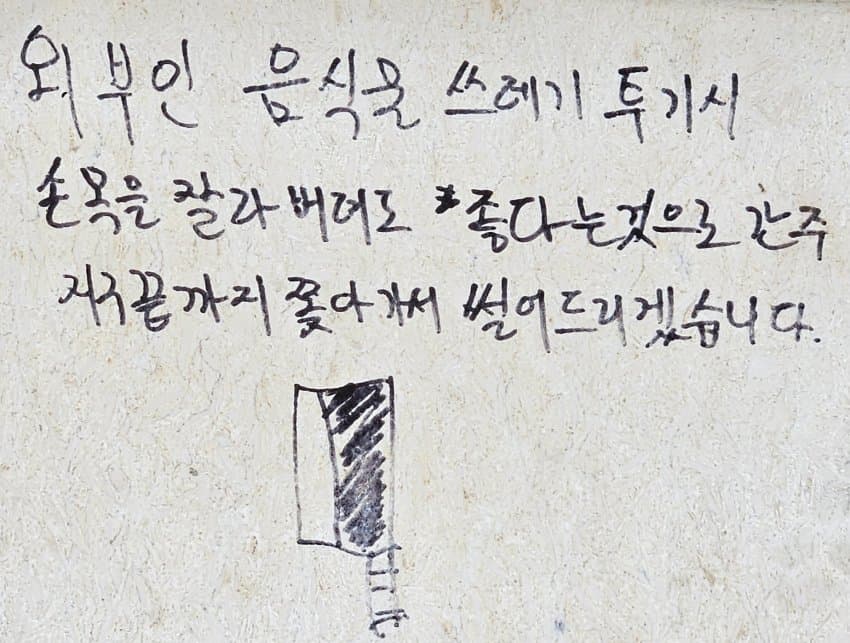 외부인 음식물 쓰레기 투기시
손목을 잘라 버려도 *좋다는것으로 간주
지구끝까지 쫓아가서 썰어드리겠습니다.